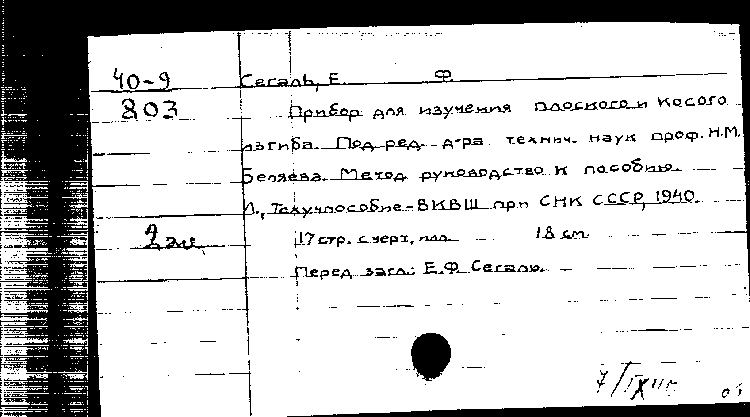 40-9
803
Сегаль, Е. Ф.
Прибор для изучения плоского и косого
изгиба. Под ред. д-ра технич. наук проф. Н.М.
Беляева. Метод руководство к пособию.
Л., Техучпособие-ВКВШ при СНК СССР, 1940.
17 стр. с черт, илл. 18 см
Перед загл.: Е.Ф Сегаль.
2 экз.